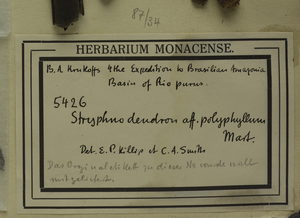 87/34
HERBARIUM MONACENSE.
B. A. Krukoff's 4the Expedition to Brasilian Amazonia
Basin of Rio purus.
5426
Stryphnodendron aff. polyphyllum
Mart.
Det. E. P. Killip et C. A. Smith
Das Original etikett zu dieser No wurde nicht
mitgeliefert.